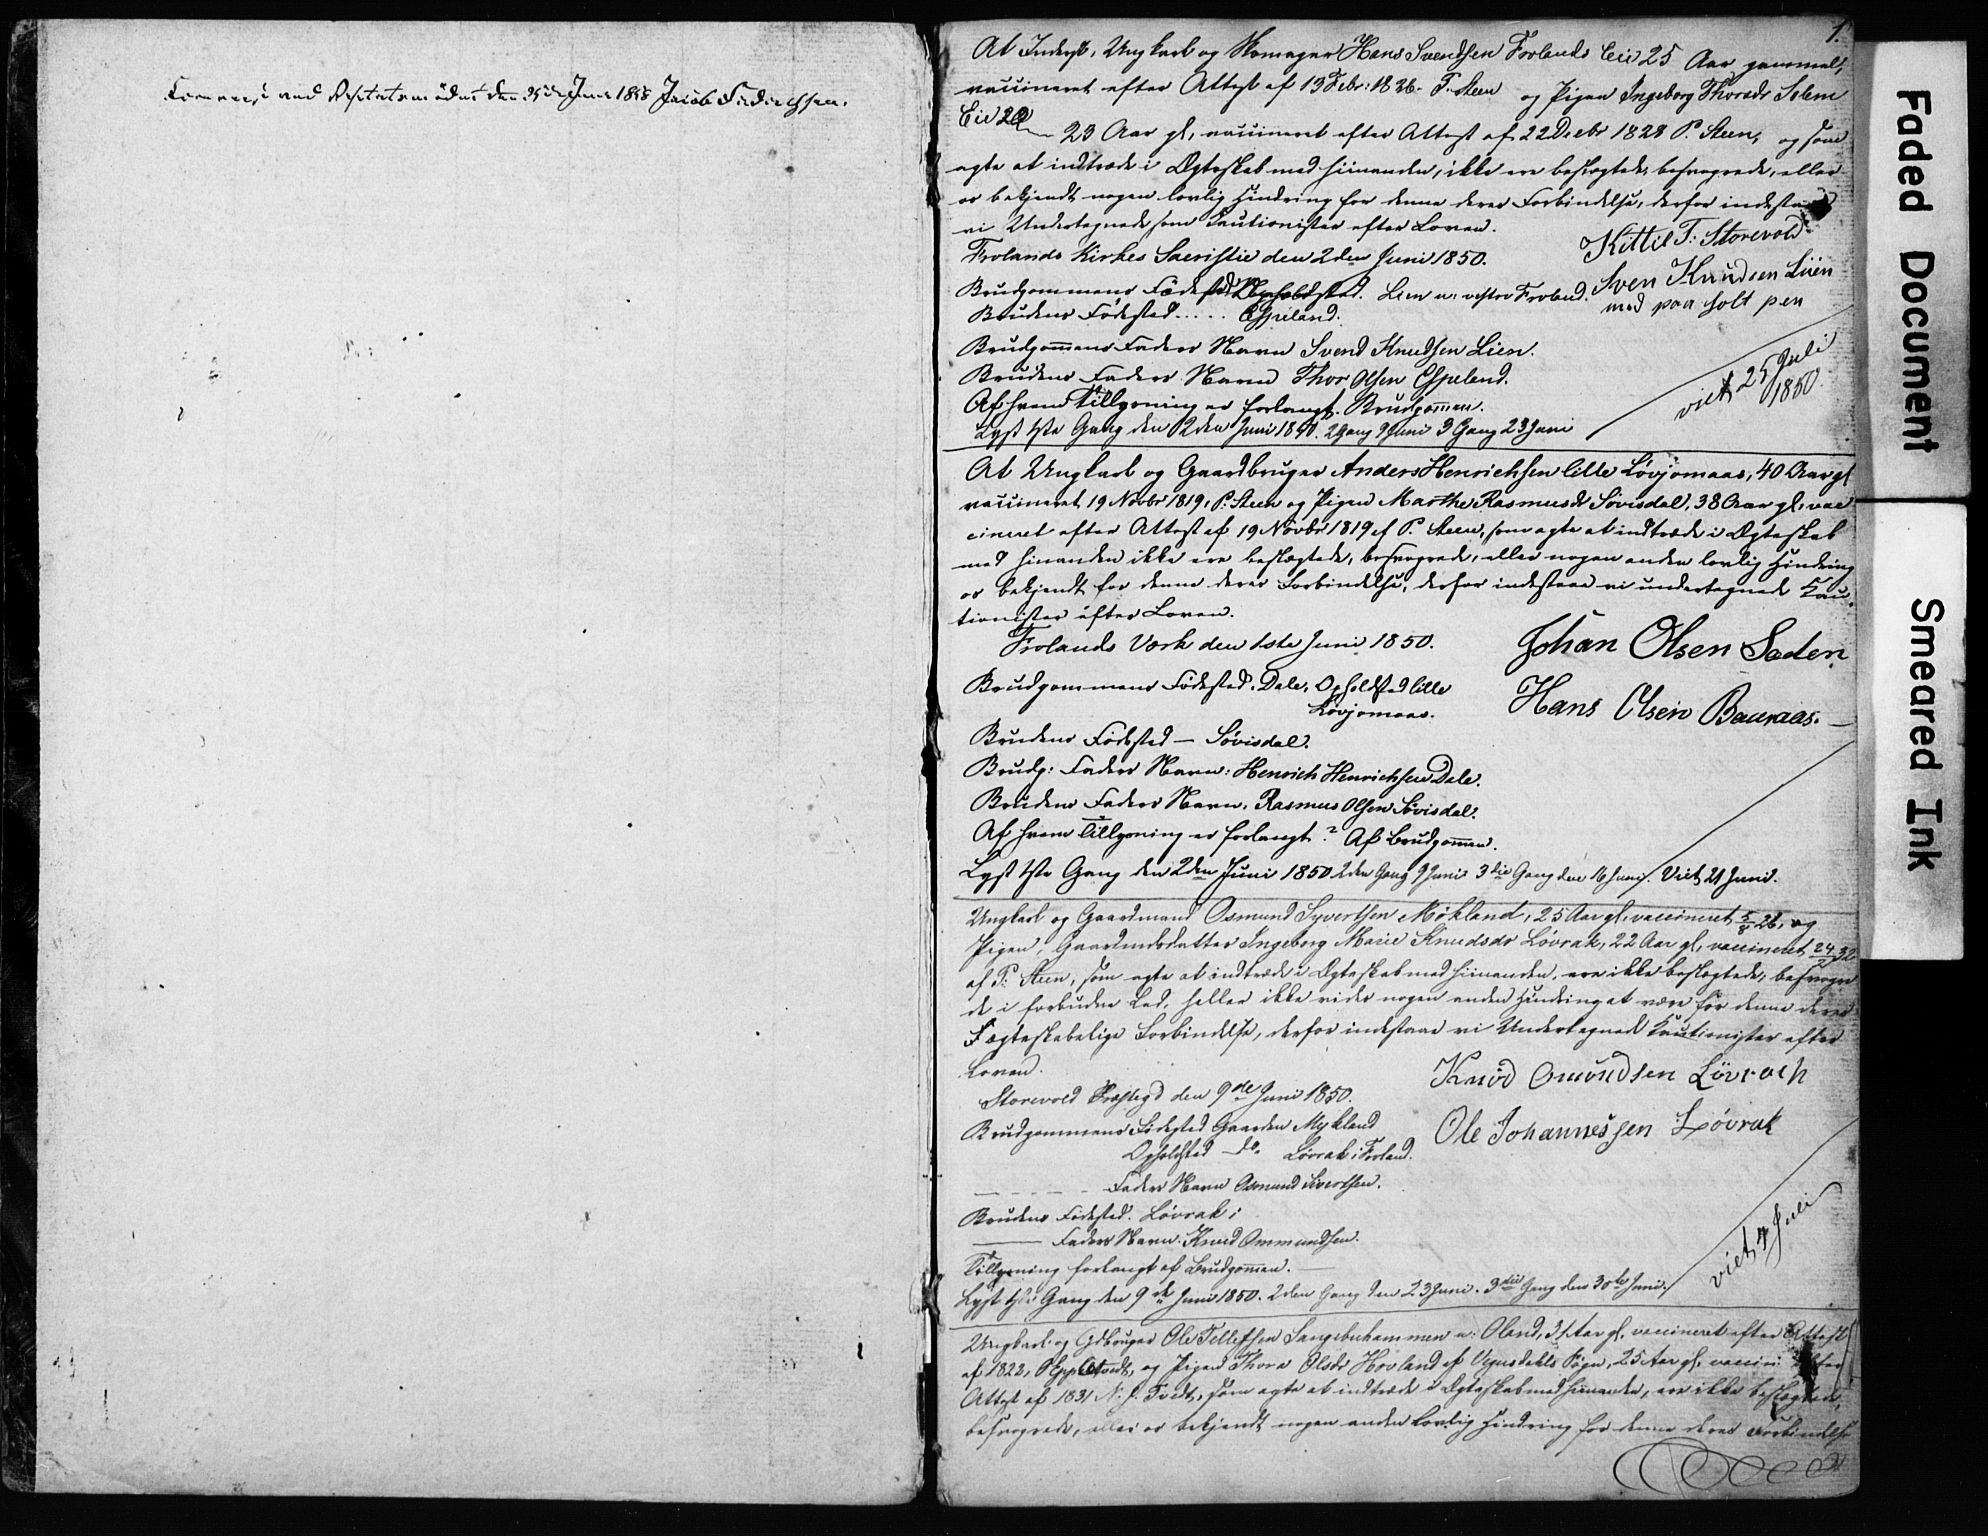 Jacob Friderichsen.
1.
At Inderst, Ungkarl og Skomager Hans Svendsen Frolands Eie 25 Aar gammel,
vaccineret efter Attest af 13 Febr: 1826. P. Steen og Pigen Ingeborg Thorsdr
Eie 23 Aar gl, vaccineret efter Attest af 22 Decbr 1828 P. Steen, og som
agte at indtræde i Ægteskab med hinanden, ikke ere beslægtede, besvogrede, eller
os bekjendt nogen lovlig Hindring for denne deres Forbindelse, derfor indestaae
vi Undertegnede som Cautionister efter Loven.
Frolands Kirkes Sacristie den 2den Juni 1850.
Kittil T: Storevold
Sven Knudsen Liien
med paa holt pen
Brudgommens Fødested Opholdsted. Lien u: vestre Froland.
Brudens Fødested..... Espeland.
Brudgommens Faders Navn Svend Knudsen Lien.
Brudens Faders Navn Thor Olsen Espeland.
Af hvem Tillysning er forlangt. Brudgommen.
Lyst 1ste Gang den 2den Juni 1850. 2 Gang 9 Juni 3 Gang 23 Juni
viet 25 Juli
1850.
At Ungkarl og Gaardbruger Anders Henrichsen lille Løvjomaas, 40 Aar gl
vaccineret 19 Novbr 1819, P. Steen og Pigen Marthe Rasmusdr Søvisdal, 38 Aar gl, vac
cineret efter Attest af 19 Novbr 1819 af P. Steen, som agte at indtræde i Ægteskab
med hinanden ikke ere beslægtede, besvogrede, eller nogen anden lovlig Hindring
os bekjendt for denne deres Forbindelse, derfor indestaae vi undertegnede Cau
tionister efter Loven.
Frolands Værk den 1ste Juni 1850.
Johan Olsen Saden
Hans Olsen Bauraas.
Brudgommens Fødested. Dale, Opholdsted lille
Løvjomaas.
Brudens Fødested – Søvisdal.
Brudg: Faders Navn: Henrich Henrichsen Dale.
Brudens Faders Navn. Rasmus Olsen Søvisdal.
Af hvem Tillysning er forlangt? Af Brudgommen.
Lyst 1ste Gang den 2den Juni 1850 2den Gang 9 Juni 3die Gang den 16 Juni. Viet 21 Juni.
Ungkarl og Gaardmand Osmund Syvertsen Møkland, 25 Aar gl, vaccineret 26, og
Pigen, Gaardmdsdatter Ingeborg Marie Knudsdr Løvrak, 22 Aar gl, vaccineret 24/2 32
af P: Steen, som agte at indtræde i Ægteskab med hinanden, ere ikke beslægtede, besvogre
de i forbudne Led, heller ikke vides nogen anden Hindring at være for denne deres
ægteskabelige Forbindelse, derfor indestaae vi Undertegnede Cautionister efter
Loven.
Storevold Præstegd den 9de Juni 1850.
Knud Omundsen Løvrach
Ole Johannessen Løvrak
Brudgommens Fødested Gaarden Mykland
Opholdsted do. Løvrak i Froland.
Faders Navn Osmund Sivertsen.
Brudens Fødested. Løvrak i
Faders Navn. Knud Ommundsen.
Tillysning forlangt af Brudgommen.
Lyst 1ste Gang den 9de Juni 1850. 2den Gang den 23 Juni. 3die Gang den 30te Juni.
viet 4 Juli
Ungkarl og Gdbruger Ole Tellefsen Langebuhammen u: Oland, 31 Aar gl, vaccineret efter Attest
af 1822, og Pigen Thora Olsdr Hovland af Vegusdahls Sogn, 25 Aar gl, vaccin: efter
Attest af 1831 N. J. Tvedt, som agte at indtræde i Ægteskab med hinanden, ere ikke beslægtede,
besvogrede, eller os bekjendt nogen anden lovlig Hindring for denne deres Forbindelse
Faded Document
Smeared Ink